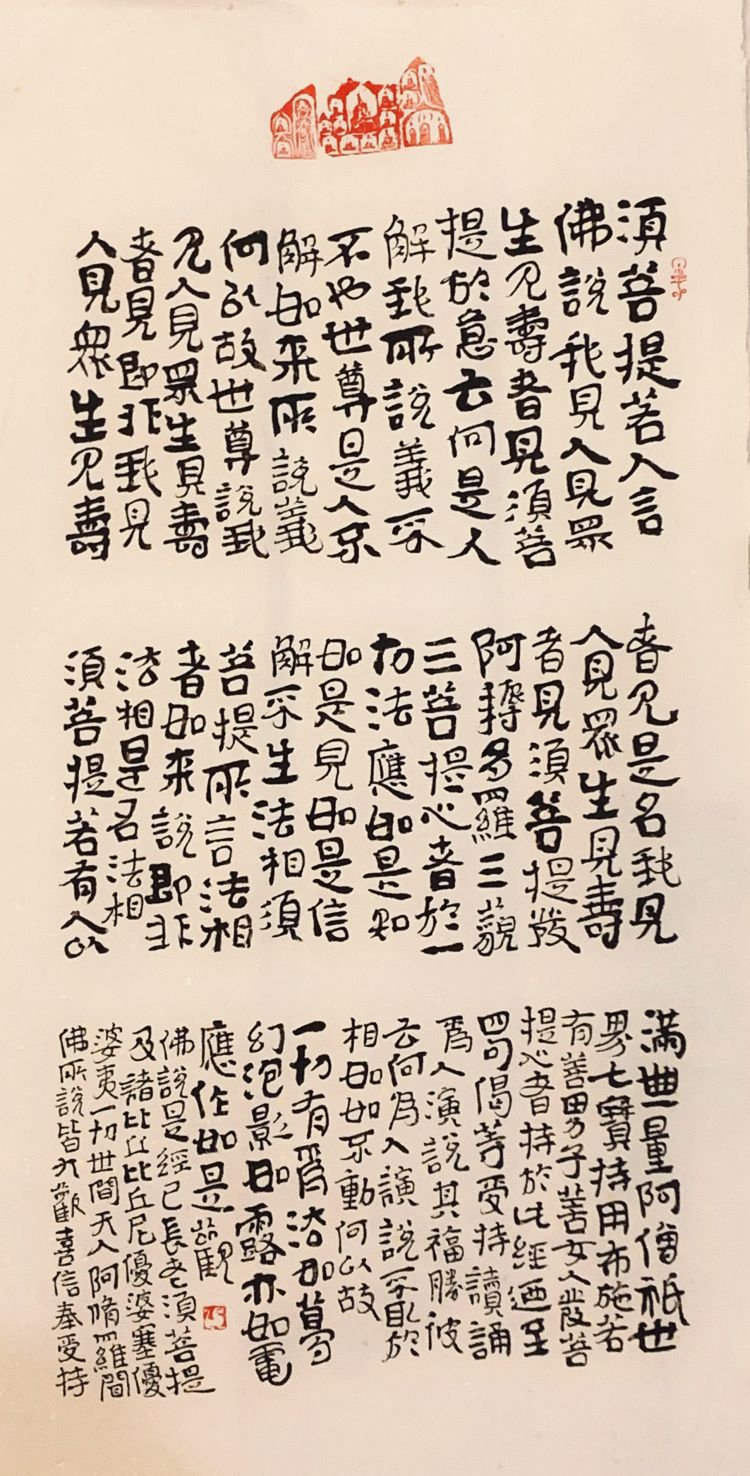 須菩提若人言
佛說我見人見眾
生見壽者見須菩
提於意云何是人
解我所說義不
不也世尊是人不
解如來所說義
何以故世尊說我
見人見眾生見壽
者見即非我見
人見眾生見壽
者見是名我見
人見眾生見壽
者見須菩提發
阿耨多羅三藐
三菩提心者於一
切法應如是知
如是見如是信
解不生法相須
菩提所言法相
者如來說即非
法相是名法相
須菩提若有人以
滿無量阿僧祇世
界七寶持用布施若
有善男子善女人發菩
提心者持於此經迺至
四句偈等受持讀誦
為人演說其福勝彼
云何為人演說不取於
相如如不動何以故
一切有為法如夢
幻泡影如露亦如電
應作如是觀
佛說是經已長老須菩提
及諸比丘比丘尼優婆塞優
婆夷一切世間天人阿脩羅聞
佛所說皆大歡喜信奉受持